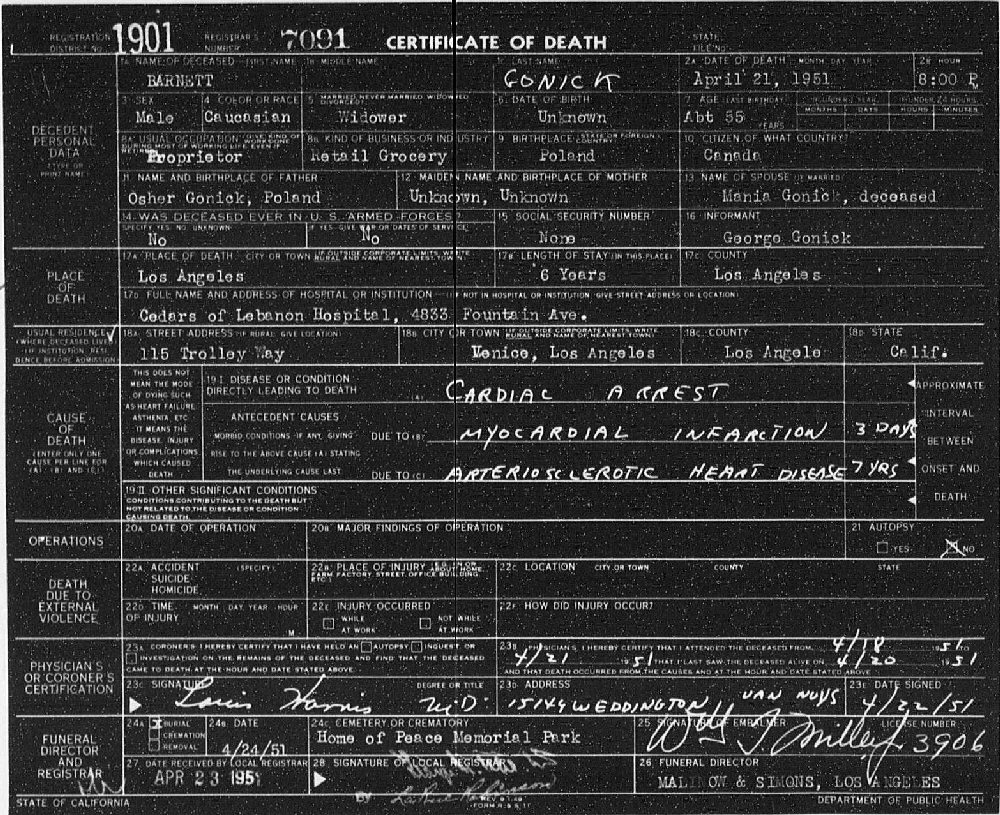 REGISTRATION DISTRICT NO. 1901 REGISTRAR'S NUMBER 7091 CERTIFICATE OF DEATH STATE FILE NO.
DECEDENT PERSONAL DATA (TYPE OR PRINT NAME)
1A NAME OF DECEASED—FIRST NAME 1B MIDDLE NAME 1C LAST NAME 2A DATE OF DEATH—MONTH, DAY, YEAR 2B HOUR
BARNETT GONICK April 21, 1951 8:00 P
3 SEX 4 COLOR OR RACE 5 MARRIED, NEVER MARRIED, WIDOWED DIVORCED 6 DATE OF BIRTH 7 AGE (LAST BIRTHDAY) IF UNDER 1 YEAR IF UNDER 24 HOURS
MONTHS DAYS HOURS MINUTES
Male Caucasian Widower Unknown Abt 55 YEARS
8A USUAL OCCUPATION (GIVE KIND OF WORK DONE DURING MOST OF WORKING LIFE, EVEN IF RETIRED) 8B KIND OF BUSINESS OR INDUSTRY 9 BIRTHPLACE (STATE OR FOREIGN COUNTRY) 10 CITIZEN OF WHAT COUNTRY?
Proprietor Retail Grocery Poland Canada
11 NAME AND BIRTHPLACE OF FATHER 12 MAIDEN NAME AND BIRTHPLACE OF MOTHER 13 NAME OF SPOUSE (IF MARRIED)
Osher Gonick, Poland Unknown, Unknown Mania Gonick, deceased
14 WAS DECEASED EVER IN U. S. ARMED FORCES? 15 SOCIAL SECURITY NUMBER 16 INFORMANT
SPECIFY YES, NO, UNKNOWN IF YES, GIVE WAR OR DATES OF SERVICE
No No None George Gonick
PLACE OF DEATH
17A PLACE OF DEATH—CITY OR TOWN (IF OUTSIDE CORPORATE LIMITS, WRITE RURAL AND NAME OF NEAREST TOWN) 17B LENGTH OF STAY (IN THIS PLACE) 17C COUNTY
Los Angeles 6 Years Los Angeles
17D FULL NAME AND ADDRESS OF HOSPITAL OR INSTITUTION (IF NOT IN HOSPITAL OR INSTITUTION, GIVE STREET ADDRESS OR LOCATION)
Cedars of Lebanon Hospital, 4833 Fountain Ave.
USUAL RESIDENCE (WHERE DECEASED LIVED (IF INSTITUTION, RESIDENCE BEFORE ADMISSION)
18A STREET ADDRESS (IF RURAL GIVE LOCATION) 18B CITY OR TOWN (IF OUTSIDE CORPORATE LIMITS, WRITE RURAL AND NAME OF NEAREST TOWN) 18C COUNTY 18D STATE
115 Trolley Way Venice, Los Angeles Los Angele Calif.
CAUSE OF DEATH (ENTER ONLY ONE CAUSE PER LINE FOR (A), (B) AND (C))
THIS DOES NOT MEAN THE MODE OF DYING SUCH AS HEART FAILURE, ASTHENIA, ETC. IT MEANS THE DISEASE, INJURY OR COMPLICATIONS WHICH CAUSED DEATH
19 I DISEASE OR CONDITION DIRECTLY LEADING TO DEATH (A) CARDIAC ARREST
ANTECEDENT CAUSES
MORBID CONDITIONS, IF ANY, GIVING RISE TO THE ABOVE CAUSE (A) STATING THE UNDERLYING CAUSE LAST
DUE TO (B) MYOCARDIAL INFARCTION 3 DAYS
DUE TO (C) ARTERIOSCLEROTIC HEART DISEASE 7 YRS
APPROXIMATE INTERVAL BETWEEN ONSET AND DEATH
19 II OTHER SIGNIFICANT CONDITIONS
CONDITIONS CONTRIBUTING TO THE DEATH BUT NOT RELATED TO THE DISEASE OR CONDITION CAUSING DEATH
OPERATIONS
20A DATE OF OPERATION 20B MAJOR FINDINGS OF OPERATION 21 AUTOPSY
YES NO
DEATH DUE TO EXTERNAL VIOLENCE
22A ACCIDENT (SPECIFY) SUICIDE HOMICIDE 22B PLACE OF INJURY (E.G. IN OR ABOUT HOME, FARM, FACTORY, STREET, OFFICE BUILDING, ETC.) 22C LOCATION CITY OR TOWN COUNTY STATE
22D TIME OF INJURY MONTH DAY YEAR HOUR M 22E INJURY OCCURRED WHILE AT WORK NOT WHILE AT WORK 22F HOW DID INJURY OCCUR?
PHYSICIAN'S OR CORONER'S CERTIFICATION
23A CORONER'S: I HEREBY CERTIFY THAT I HAVE HELD AN AUTOPSY INQUEST OR INVESTIGATION ON THE REMAINS OF THE DECEASED AND FIND THAT THE DECEASED CAME TO DEATH AT THE HOUR AND DATE STATED ABOVE
23B PHYSICIAN'S: I HEREBY CERTIFY THAT I ATTENDED THE DECEASED FROM 4/18 1951 TO 4/21 1951 THAT I LAST SAW THE DECEASED ALIVE ON 4/20 1951 AND THAT DEATH OCCURRED FROM THE CAUSES AND AT THE HOUR AND DATE STATED ABOVE
23C SIGNATURE DEGREE OR TITLE 23D ADDRESS 23E DATE SIGNED
Louis Harris M.D. 15149 WEDDINGTON VAN NUYS 4/22/51
FUNERAL DIRECTOR AND REGISTRAR
24A BURIAL CREMATION REMOVAL 24B DATE 4/24/51 24C CEMETERY OR CREMATORY 25 SIGNATURE OF EMBALMER LICENSE NUMBER
Home of Peace Memorial Park 3906
27 DATE RECEIVED BY LOCAL REGISTRAR 28 SIGNATURE OF LOCAL REGISTRAR 26 FUNERAL DIRECTOR
APR 23 1951 BY MALINOW & SIMONS, LOS ANGELES
STATE OF CALIFORNIA DEPARTMENT OF PUBLIC HEALTH